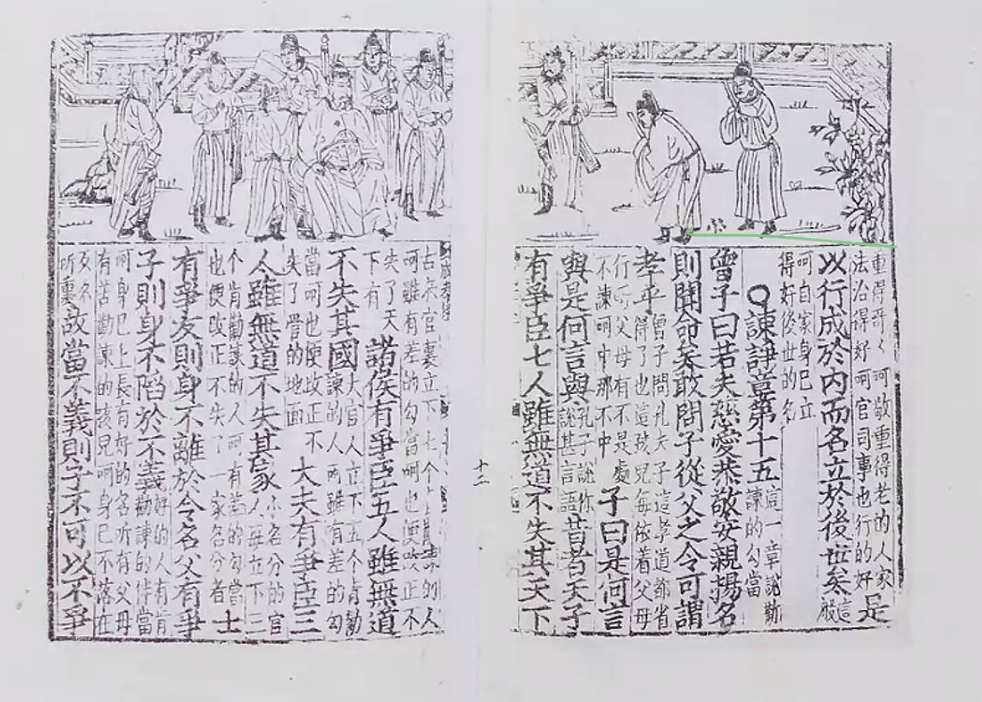 重得哥〱呵敬重得老的人家
法治得好呵官司事也行的好
是
以行成於內而名立於後世矣
這
般
呵自家身已立
得好後世的名
○諫諍章第十五
這一章說勸
諫的勾當
曾子曰若夫慈愛恭敬安親揚名
則聞命矣敢問子從父之令可謂
孝乎
曾子問孔夫子這孝道都省
得了也這孩兒每依着父母
行呵父母有不是處
不諫呵中那不中
子曰是何言
與是何言與
孔子說你
說甚言語
昔者天子
有爭臣七人雖無道不失其天下
十二
古來官裏立下七个的人
呵雖有差的勾當呵也便改正不
失了天
下有
諸侯有爭臣五人雖無道
不失其國
大官人立下五个肯勸
諫的人呵雖有差的勾
當呵也便改正不
失了管的地面
大夫有爭臣三
人雖無道不失其家
小名分的官
人每立下三
个肯勸諫的人呵有差的勾當
也便改正不失了一家名分者
士
有爭友則身不離於令名父有爭
子則身不陷於不義
好的人有肯
勸諫的伴當
呵身已上長有好的名听有父母
有苦勸諫的孩兒呵身已不落在
歹名
听裏
故當不義則子不可以不爭